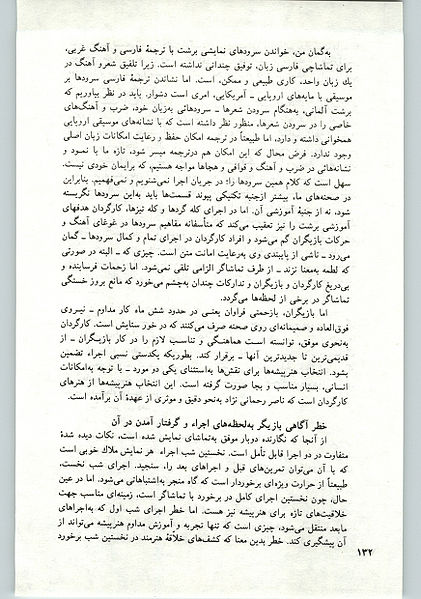 به‌گمان من، خواندن سرودهای نمایشی برشت با ترجمهٔ فارسی و آهنگ غربی،
برای تماشاچی فارسی زبان، توفیق چندانی نداشته است. زیرا تلفیق شعرو آهنگ در
یك زبان واحد، کاری طبیعی و ممکن، است. اما نشاندن ترجمهٔ فارسی سرودها بر
موسیقی با مایه‌های اروپایی ـ آمریکایی، امری است دشوار. باید در نظر بیاوریم که
برشت آلمانی، به‌هنگام سرودن شعرها ـ سرودهائی به‌زبان خود، ضرب و آهنگ‌های
خاصی را در سرودن شعرها، منظور نظر داشته است که با نشانه‌های موسیقی اروپایی
همخوانی داشته و دارد، اما طبیعتاً در ترجمه امکان حفظ و رعایت امکانات زبان اصلی
وجود ندارد. فرض محال که این امکان هم درترجمه میسر شود، تازه ما با نمود و
نشانه‌هائی در ضرب و آهنگ و قوافی و هجاها مواجه هستیم، که برایمان خودی نیست.
سهل است که کلام همین سرودها را؛ در جریان اجرا نمی‌شنویم و نمی‌فهمیم. بنابراین
در صحنه‌های ما، بیشتر ازجنبه تکنیکی پیوند قسمت‌ها باید به‌این سرودها نگریسته
شود، نه از جنبهٔ آموزشی آن. اما در اجرای کله گردها و کله تیزها، کارگردان هدفهای
آموزشی برشت را نیز تعقیب می‌کند که متأسفانه مفاهیم سرودها در غوغای آهنگ و
حرکات بازیگران گم می‌شود و افراد کارگردان در اجرای تمام و کمال سرودها ـ گمان
می‌رود ـ ناشی از پایبندی وی به‌رعایت امانت متن است. چیزی که ـ البته در صورتی
که لطمه به‌معنا نزند ـ از طرف تماشاگر الزامی تلقی نمی‌شود. اما زحمات فرساینده و
بی‌دریغ کارگردان و بازیگران و تدارکات چندان به‌چشم می‌خورد که مانع بروز خستگی
تماشاگر در برخی از لحظه‌ها می‌گردد.
اما بازیگران، بازحمتی فراوان یعنـی در حدود شش ماه کار مداوم ـ نیـروی
فوق‌العاده و صمیمانه‌ای روی صحنه صرف می‌کنند که در خور ستایش است. کارگردان
به‌نحوی موفق، توانسته است هماهنگـی و تناسـب لازم را در کار بازیگـران ـ از
قدیمی‌ترین تا جدیدترین آنها ـ برقرار کند. بطوریکه یکدستی نسبی اجراء تضمین
بشود. انتخاب هنرپیشه‌ها برای نقش‌ها به‌استثنای یکی دو مورد ـ با توجه به‌امکانات
انسانی، بسیار مناسب و بجا صورت گرفته است. این انتخاب هنرپیشه‌ها از هنرهای
کارگردان است که ناصر رحمانی نژاد به‌نحو دقیق و موثری از عهدهٔ آن برآمده است.
خطر آگاهی بازیگر به‌لحظه‌های اجراء و گرفتار آمدن در آن
از آنجا که نگارنده دوبار موفق به‌تماشای نمایش شده است، نکات دیده شدهٔ
متفاوت در دو اجرا قابل تأمل است. نخستین شب اجراء هر نمایش ملاك خوبی است
که با آن می‌توان تمرین‌های قبل و اجراهای بعد را، سنجید. اجرای شب نخست،
طبیعتاً از حرارت ویژه‌ای برخوردار است که گاه منجر به‌اشتباهاتی می‌شود. اما در عین
حال، چون نخستین اجرای کامل در برخورد با تماشاگر است، زمینه‌ای مناسب جهت
خلاقیت‌های تازه برای هنرپیشه نیز هست. اما خطر اجرای شب اول که به‌اجراهای
مابعد منتقل می‌شود، چیزی است که تنها تجربه و آموزش مداوم هنرپیشه می‌تواند از
آن پیشگیری کند. خطر بدین معنا که کشف‌های خلاقهٔ هنرمند در نخستین شب برخورد
۱۳۲